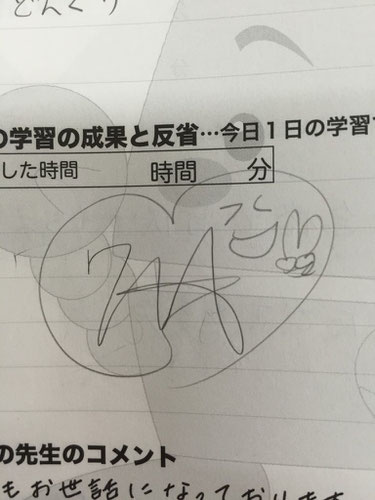 どんぐり
の学習の成果と反省…今日1日の学習
した時間 時間 分
の先生のコメント
もお世話になっております